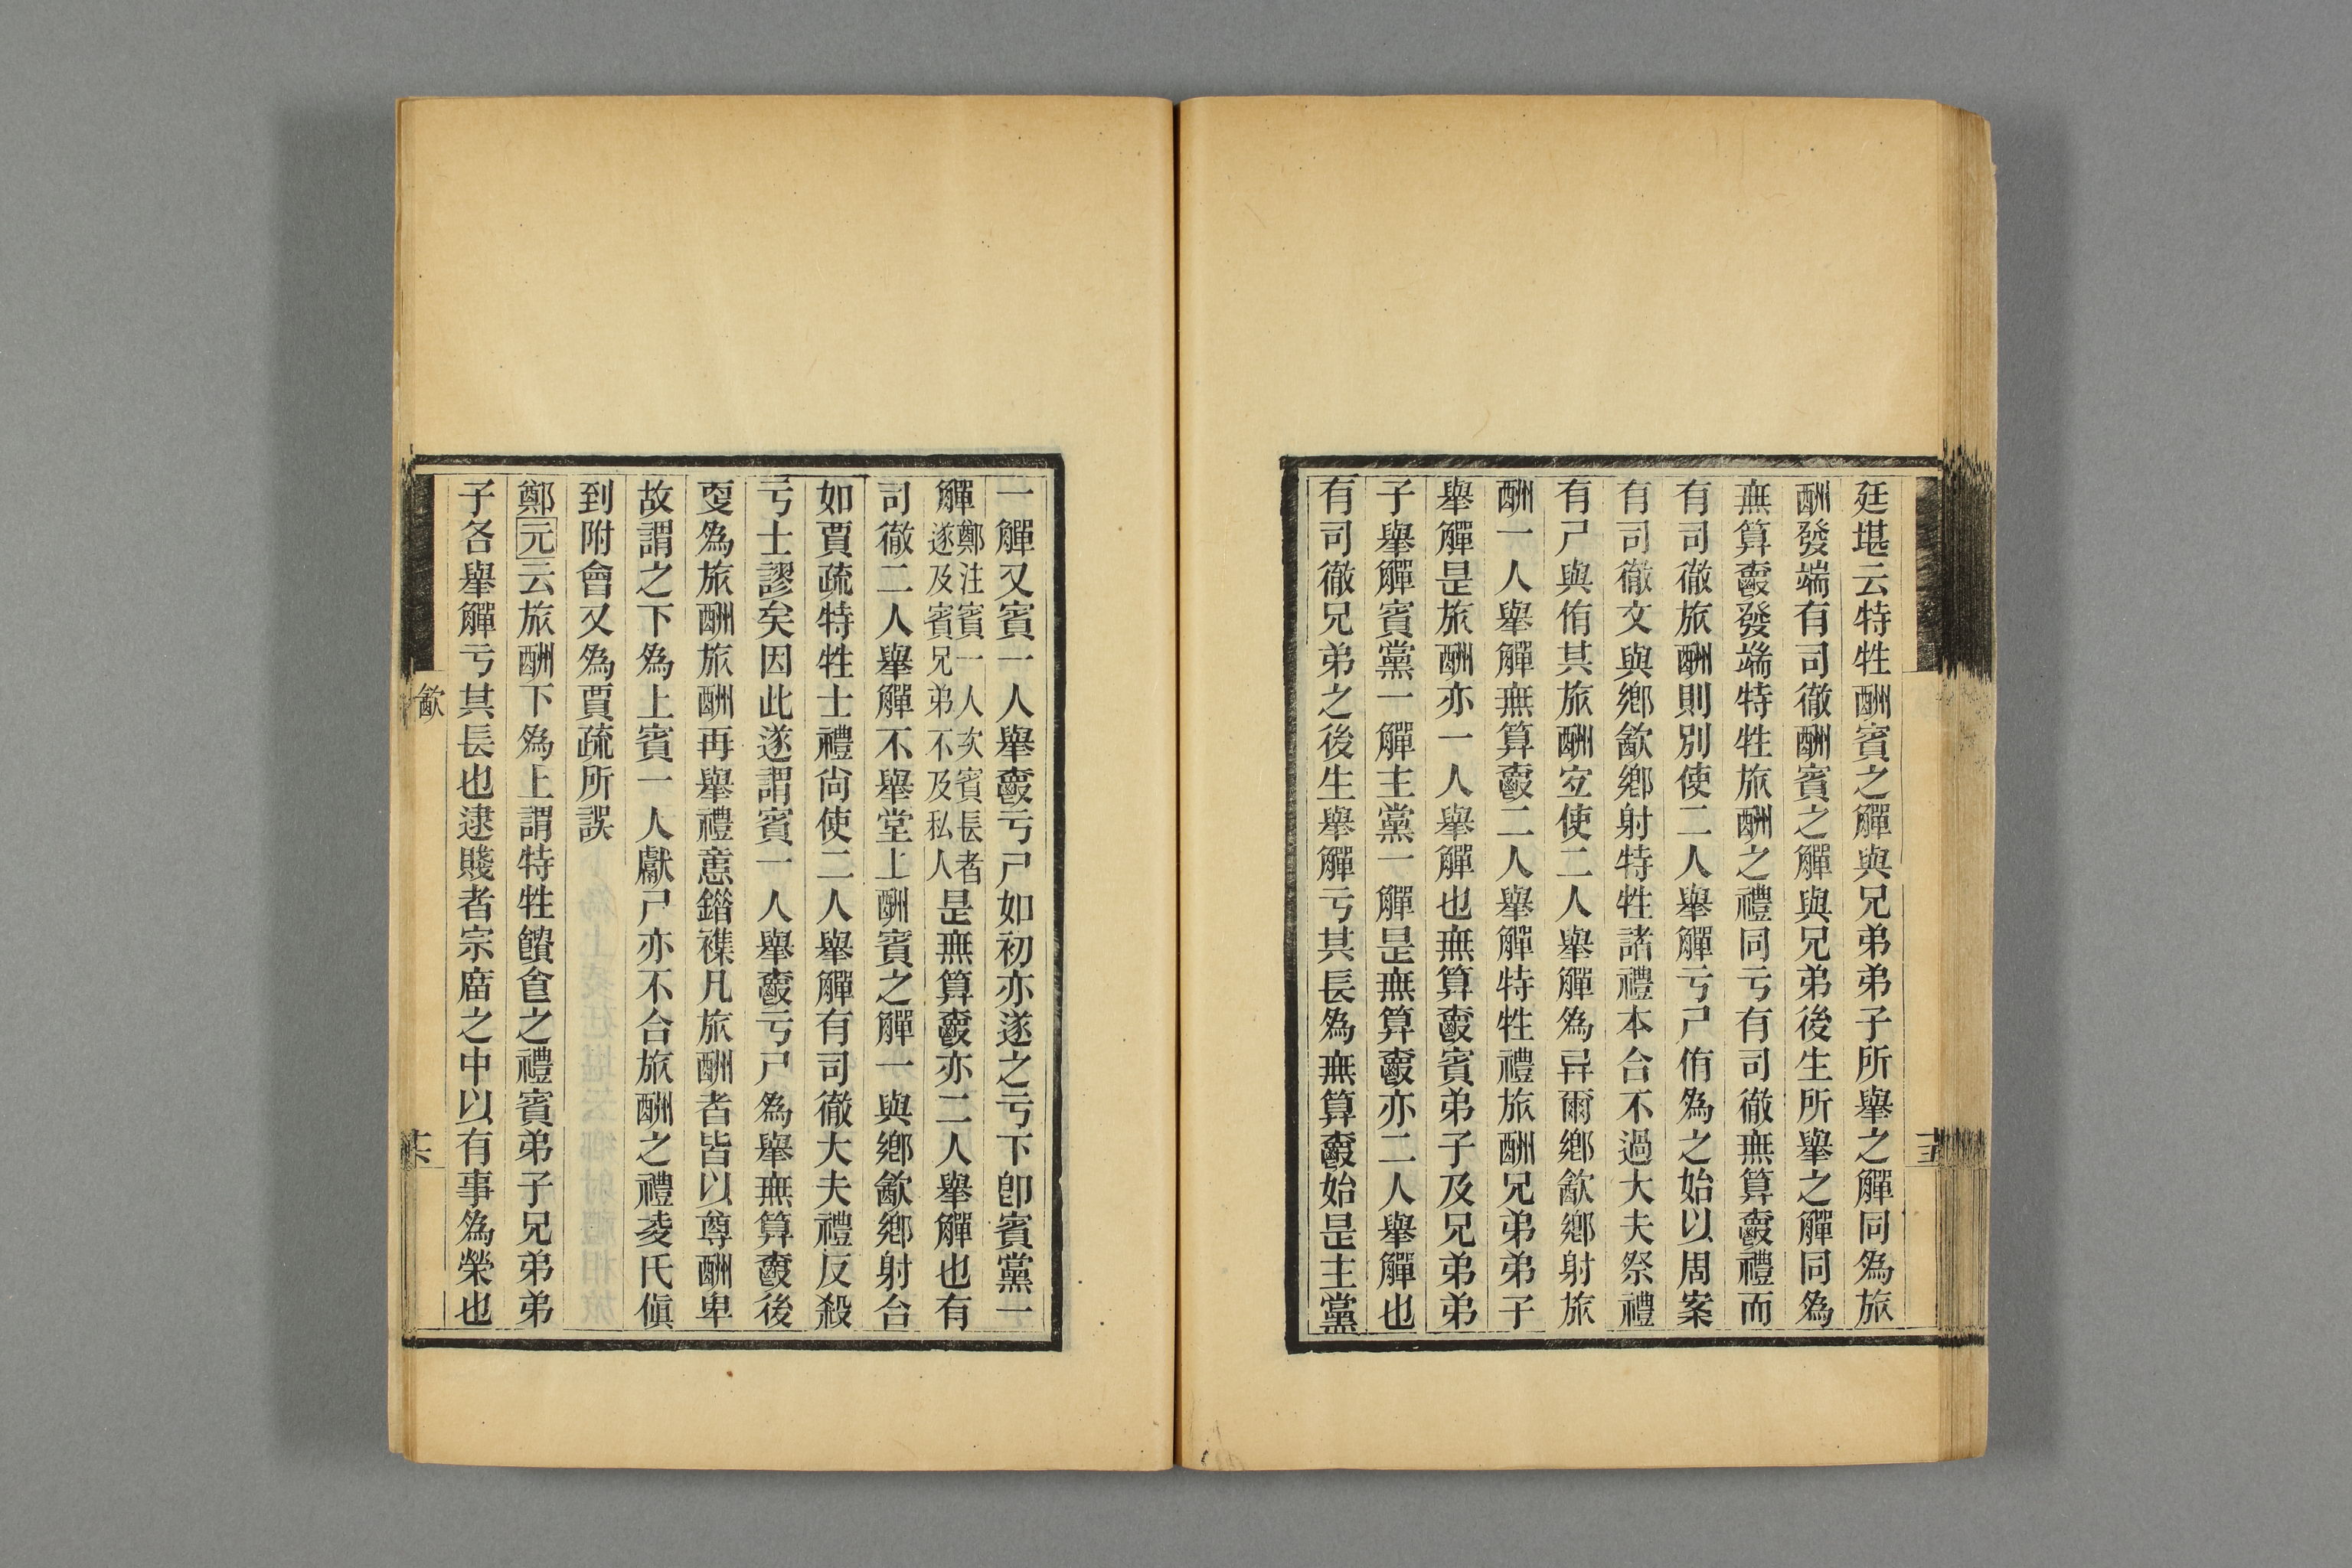 廷堪云特牲酬賓之觶與兄弟弟子所舉之觶同爲旅
酬發端有司徹酬賓之觶與兄弟後生所舉之觶同爲
無算爵發端特牲旅酬之禮同亏有司徹無算爵禮而
有司徹旅酬則別使二人舉觶亏尸侑爲之始以周案
有司徹文與鄉㱃鄉射特牲諸禮本合不過大夫祭禮
有尸與侑其旅酬宐使二人舉觶爲異爾鄉㱃鄉射旅
酬一人舉觶無算爵二人舉觶特牲禮旅酬兄弟弟子
舉觶是旅酬亦一人舉觶也無算爵賓弟子及兄弟弟
子舉觶賓黨一觶主黨一觶是無算爵亦二人舉觶也
有司徹兄弟之後生舉觶亏其長爲無算爵始是主黨
十五
一觶又賓一人舉爵亏尸如初亦遂之亏下卽賓黨一
觶鄭注賓一人次賓長者遂及賓兄弟不及私人是無算爵亦二人舉觶也有
司徹二人舉觶不舉堂上酬賓之觶一與鄉㱃鄉射合
如賈疏特牲士禮尙使二人舉觶有司徹大夫禮反殺
亏士謬矣因此遂謂賓一人舉爵亏尸爲舉無算爵後
叓爲旅酬旅酬再舉禮意錯襍凡旅酬者皆以尊酬卑
故謂之下爲上賓一人獻尸亦不合旅酬之禮凌氏傎
到附會又爲賈疏所誤
鄭元云旅酬下爲上謂特牲饋食之禮賓弟子兄弟弟
子各舉觶亏其長也逮賤者宗庿之中以有事爲榮也
㱃
十六